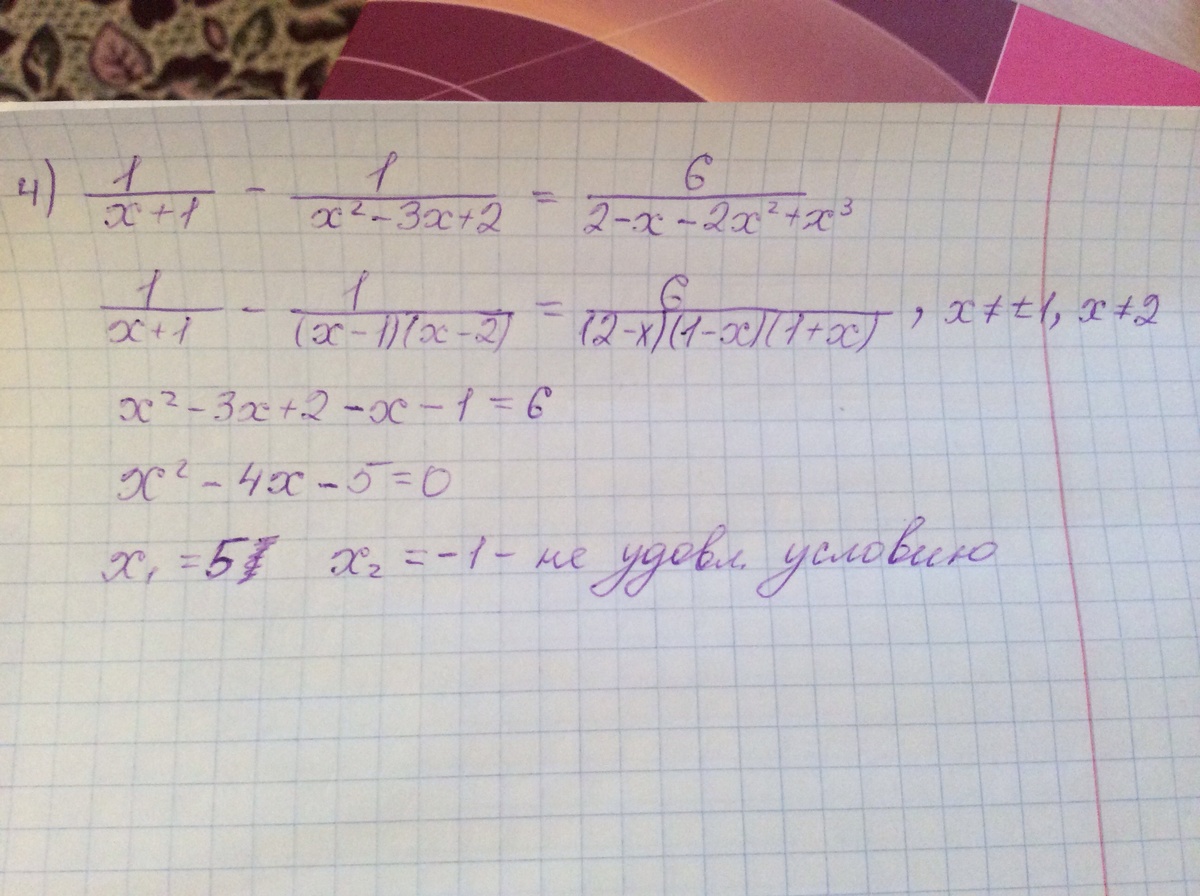 4) 1/(x+1) - 1/(x²-3x+2) = 6/(2-x-2x²+x³)
1/(x+1) - 1/((x-1)(x-2)) = 6/((2-x)(1-x)(1+x)), x≠±1, x≠2
x²-3x+2-x-1=6
x²-4x-5=0
x₁=5 x₂=-1 - не удовл. условию